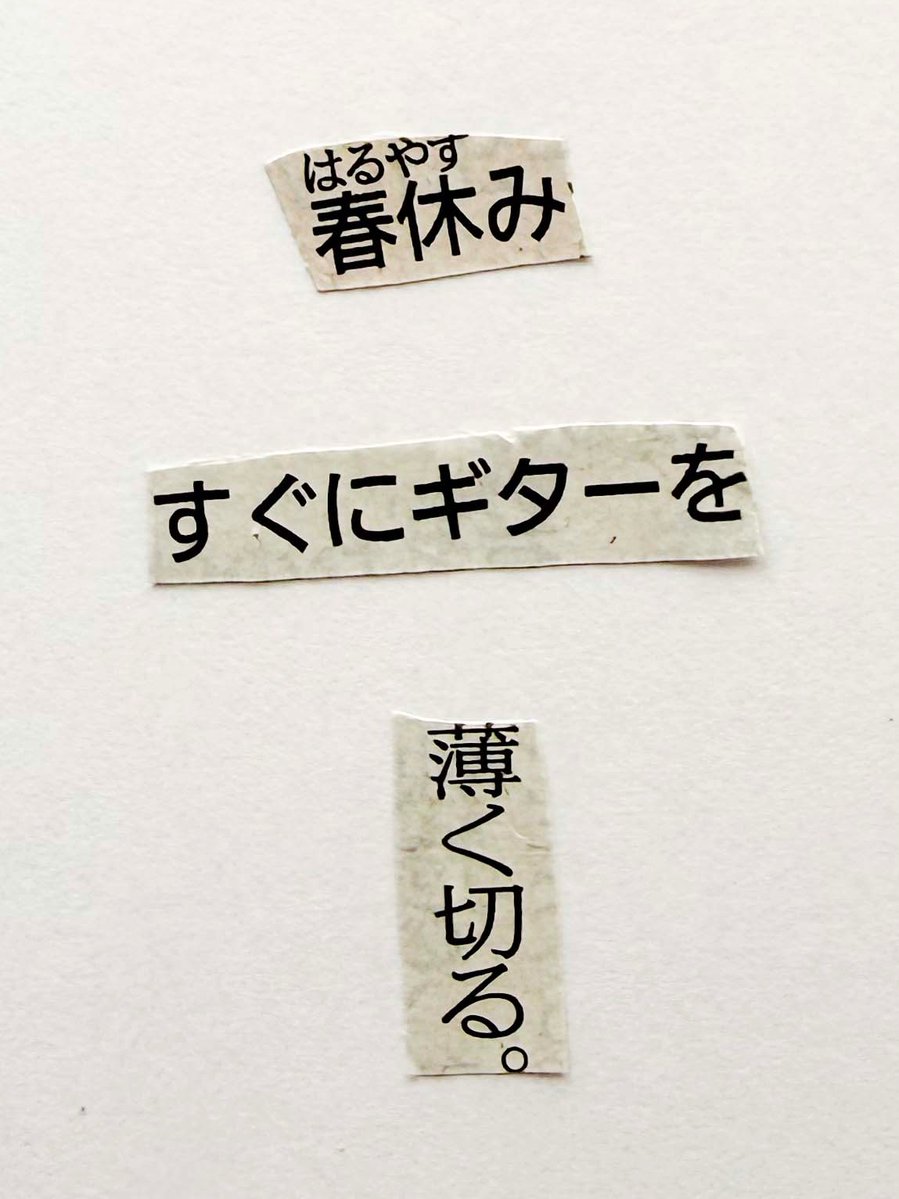 はるやす
春休み
すぐにギターを
薄く切る。